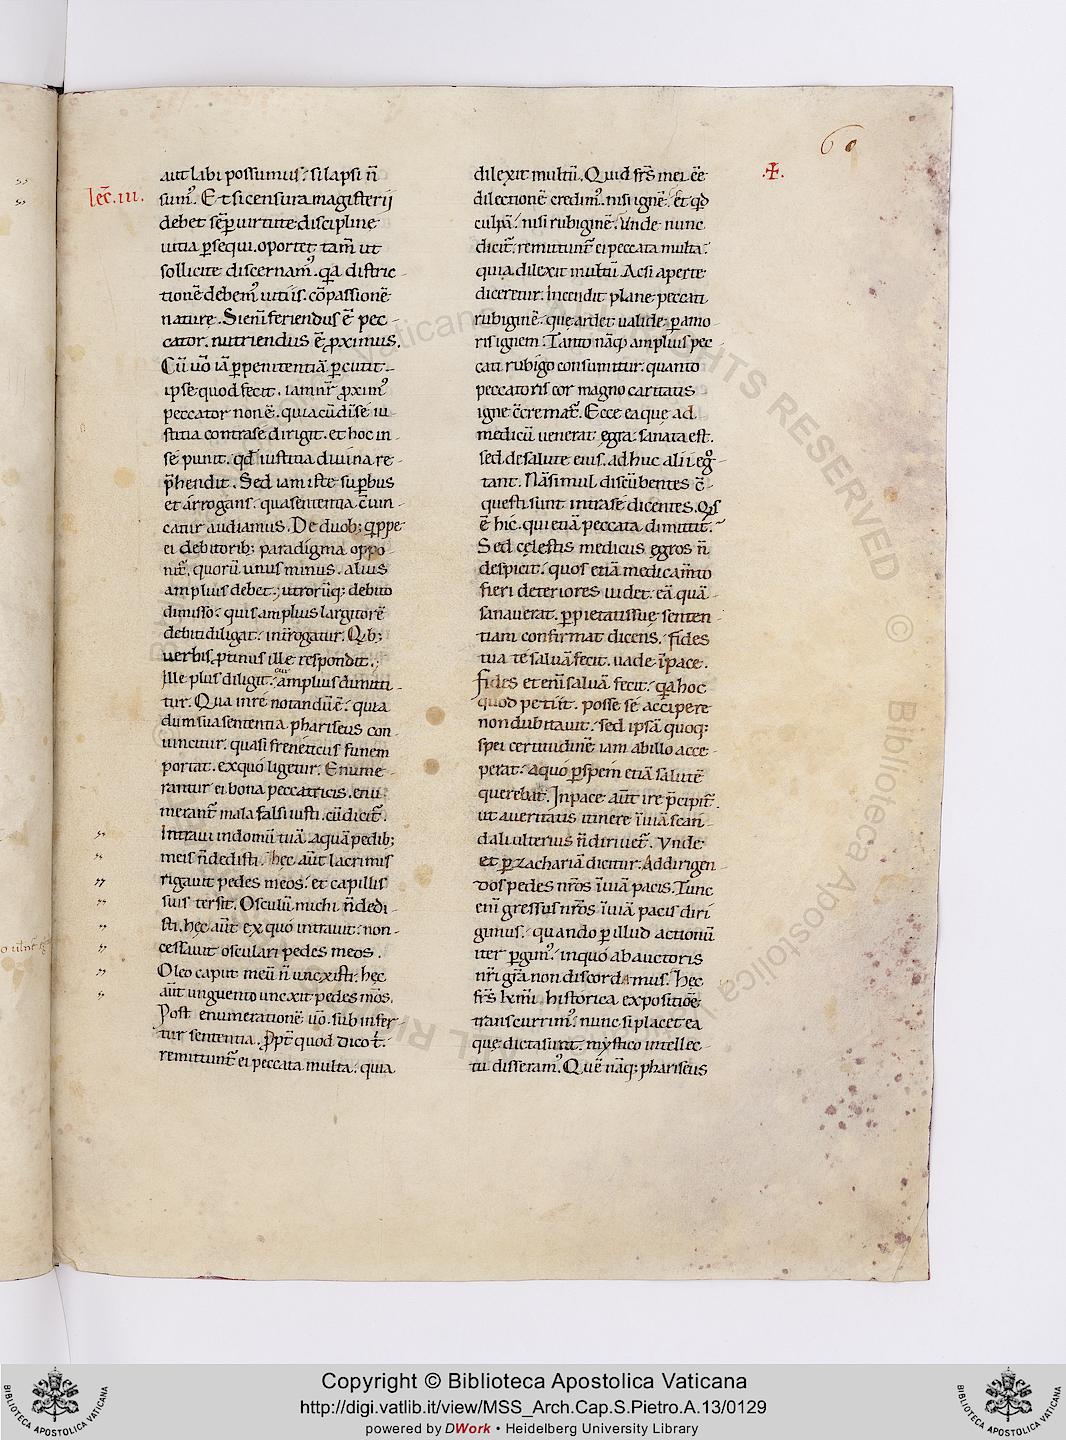 60
.✠.
lec̄.iii.
aut labi possumus. si lapsi n̄
sum᷒. Et si censura magisterij
debet sēp uirtute discipline
uitia ꝑsequi. oportet tam̄ ut
sollicite discernam᷒. qa distric-
tionē debem᷒ uitiis. cōpassionē
naturę. Si enī feriendus ē pec-
cator. nutriendus ē proximus.
Cū uo iā ꝑ penitentiā ꝑcutit
ipse quod fecit. iam nr̄ proxim᷒
peccator non ē. quia cū di se iu
stitia contra se dirigit. et hoc in
se punit. qd iustitia diuina re-
p̄hendit. Sed iam iste suꝑbus
et arrogans. qua sententia c̄uin-
catur audiamus. De duob; qppe
ei debitorib; paradigma oppo
nit̄. quorū unus minus. alius
amplius debet. utrorūq; debito
dimisso. quis amplius largitorē
debiti diligat. int̄rogatur. Qb;
uerbis ꝓtinus ille respondit.
Ille plus diligit. cui amplius dimitti-
tur. Qua in re notandū ē. quia
dum sua sententia phariseus con-
uincitur. quasi freneticus funem
portat. ex quo ligetur. Enume-
rantur ei bona peccatricis. enu
merant̄ mala falsi iusti. cū dicit̄.
Intraui in domū tuā. aquā pedib;
meis n̄ dedisti. hęc aūt lacrimis
rigauit pedes meos. et capillis
suis tersit. Osculū michi n̄ dedi-
sti. hęc aūt ex quo intrauit. non-
cessauit osculari pedes meos.
Oleo caput meū n̄ unxisti. hęc
aūt unguento unexit pedes m̄os.
Post enumerationē uo. sub infer
tur sententia. ꝓpt̄ quod dico t̄.
remittunt̄ ei peccata multa. quia
dilexit multū. Quid frs̄ mei ēē
dilectionē credim᷒. nisi ignē. et qd
culpā. nisi rubiginē. Vnde nunc
dicit̄. remittunt̄ ei peccata multa.
quia dilexit multū. Ac si aperte
diceretur. Incendit plane peccati
rubiginē. quę ardet ualide ꝑ amo
ris ignem. Tanto nāq amplius pec-
cati rubigo consumitur. quanto
peccatoris cor magno caritatis
igne c̄crematr̄. Ecce ea quę ad
medicū uenerat ęgra sanata est.
sed de salute eius. ad huc alii ęgͦ-
tant. Nā simul discūbentes c̄-
questi sunt intra se dicentes. Qs
ē hic. qui etiā peccata dimittit.
Sed cęlestis medicus egros n̄
despicit. quos etiā medicam̄to
fieri deteriores uidet. eā quā-
sanauerat. ꝑ pietatis suę senten
tiam confirmat dicens. fides
tua te saluā fecit. uade ī pace.
Fides et enī saluā fecit. qa hoc
quod petiit. posse se accipere
non dubitauit. sed ipsā quoq;
spei certitudinē iam ab illo acce-
perat. a quo ꝑ spem etiā salutē
querebat. In pace aūt ire p̄cipit̄.
ut a ueritatis itinere ī uiā scan-
dali ulterius n̄ diriuet̄. Vnde
et ꝑ zachariā dicitur. Ad dirigen-
dos pedes nr̄os ī uiā pacis. Tunc
enī gressus nr̄os ī uiā pacis diri
gimus. quando ꝑ illud actionū
iter ꝑgim᷒. in quo ab auctoris
nr̄i gr̄a non discordamus. Hęc
frs̄ kxmi. historica expositiōe
transcurrim᷒. nunc si placet ea
quę dicta sunt. mystico intellec-
tu disseram᷒. Quē nāq; phariseus
Copyright © Biblioteca Apostolica Vaticana
http://digi.vatlib.it/view/MSS_Arch.Cap.S.Pietro.A.13/0129
powered by DWork • Heidelberg University Library
BIBLIOTECA APOSTOLICA VATICANA
BIBLIOTECA APOSTOLICA VATICANA